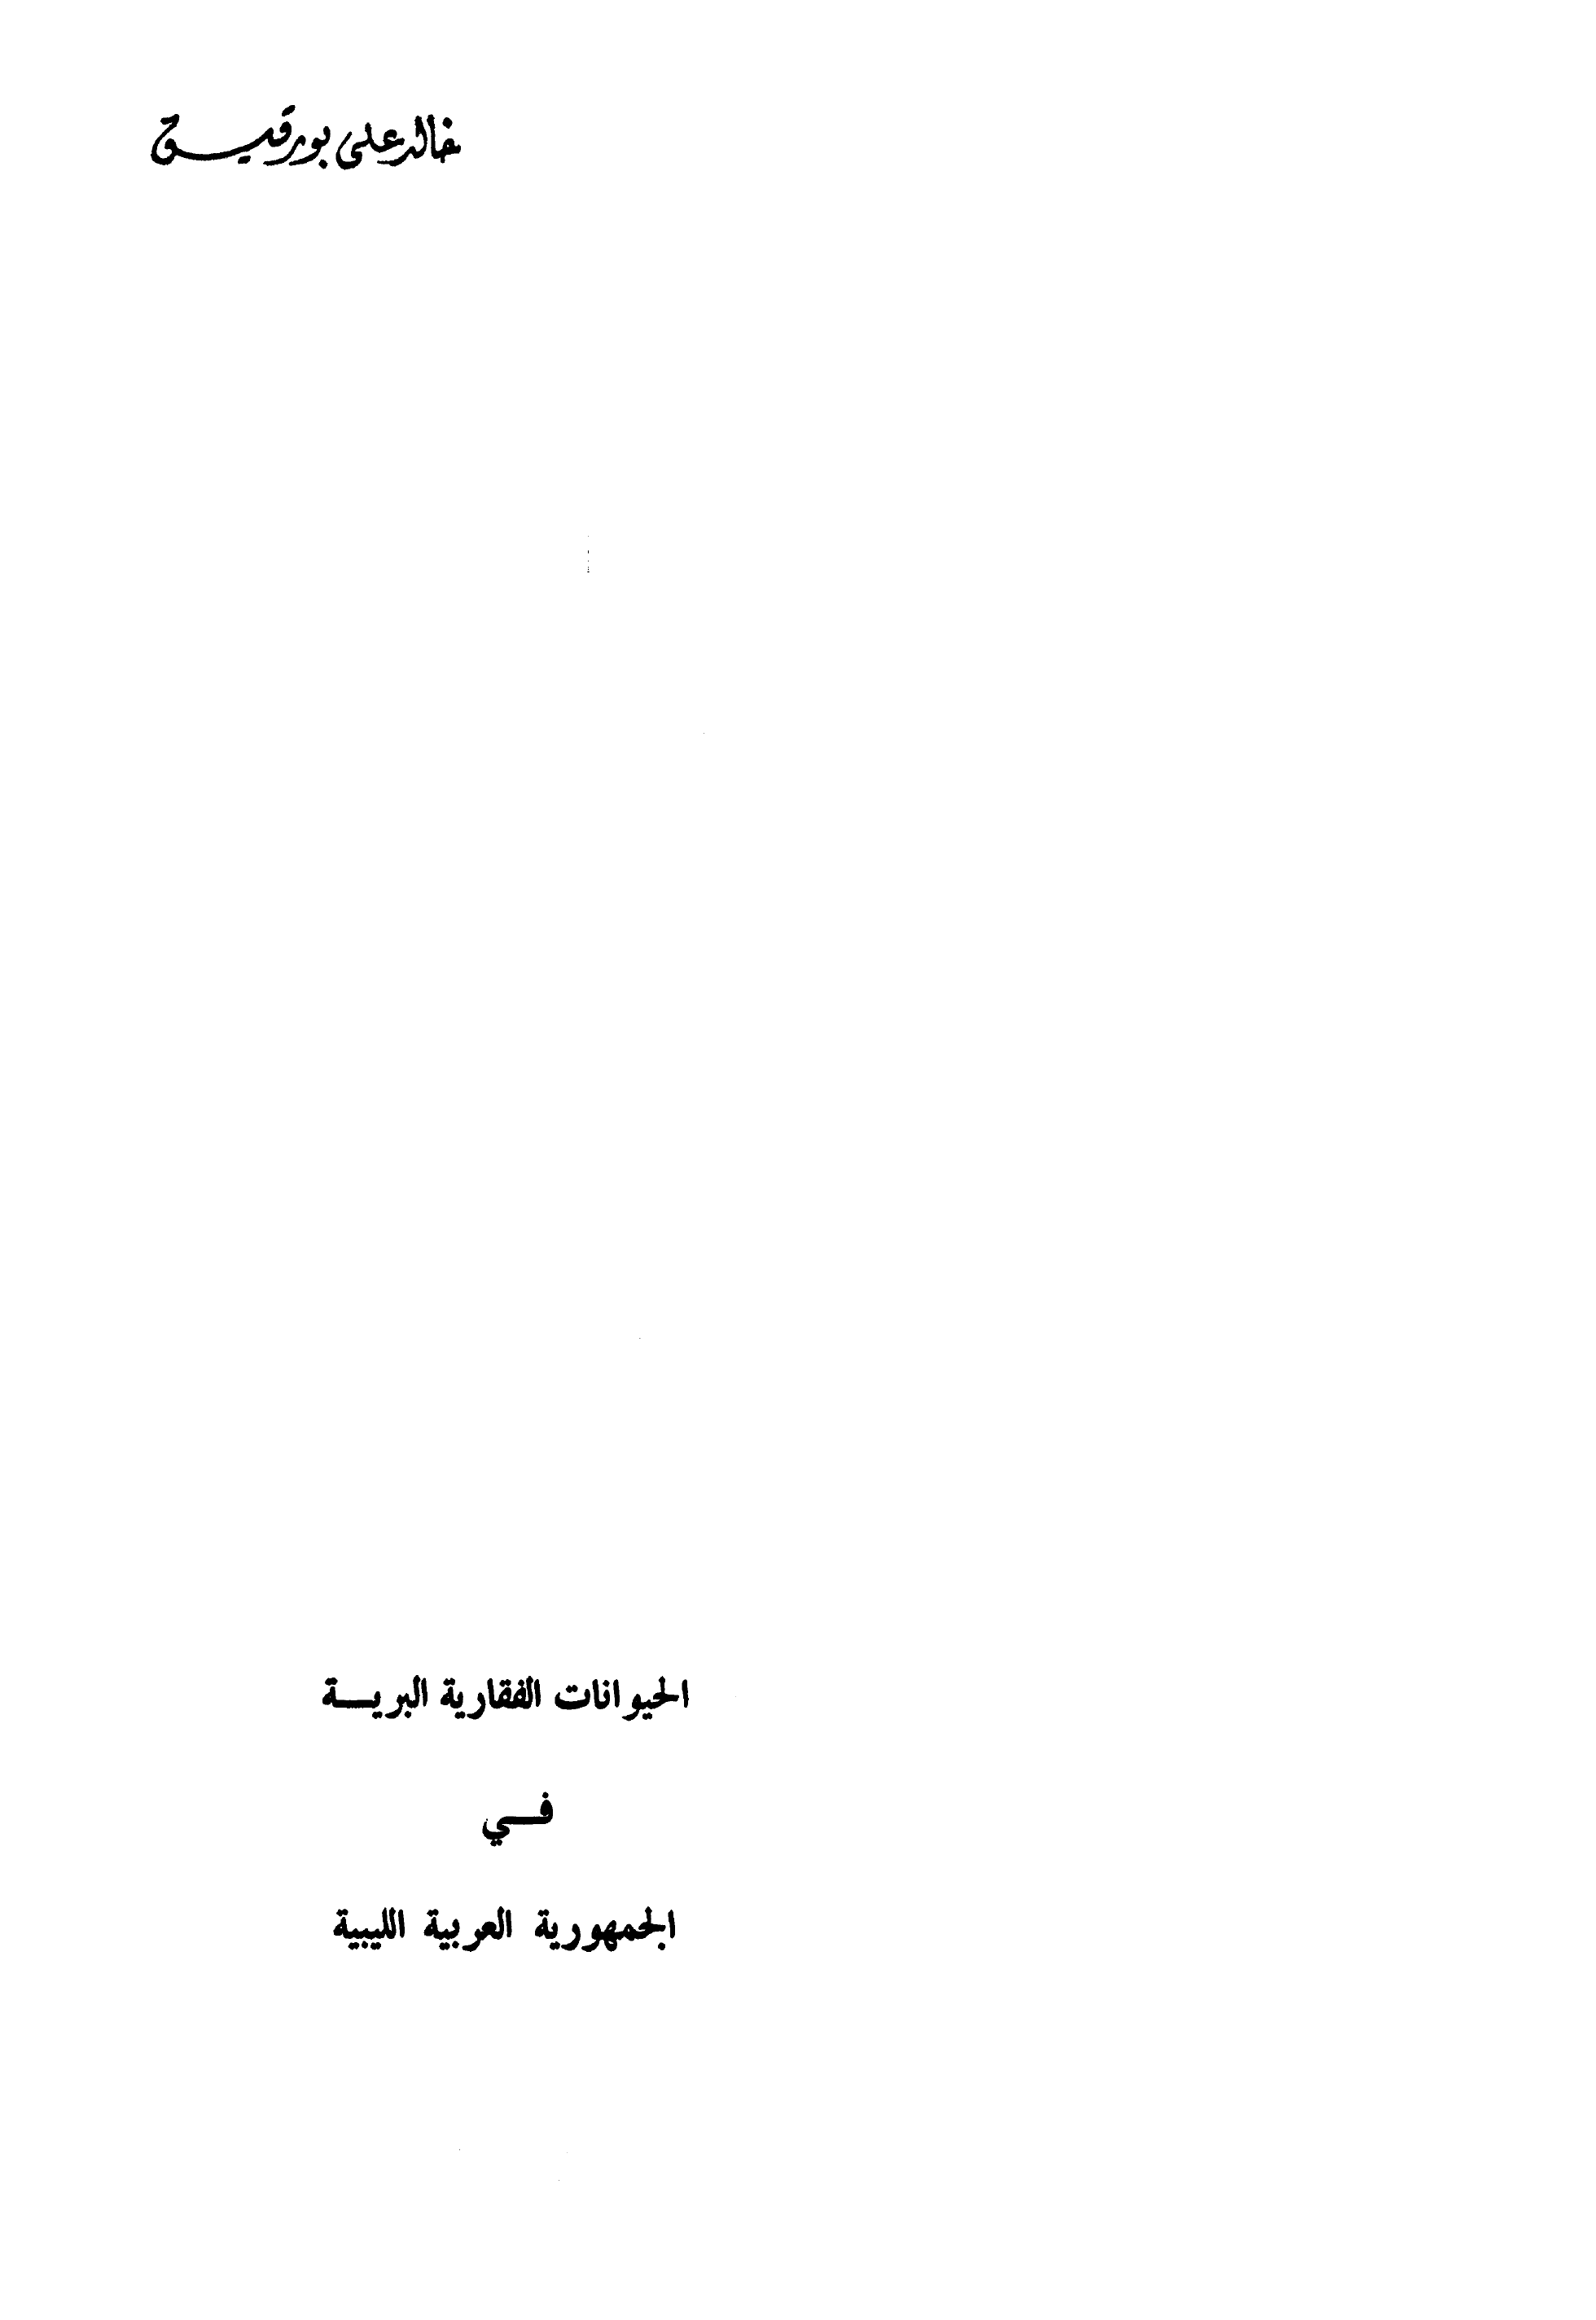 خالد علي بورقيق
الحيوانات الفقارية البريـــة
فـــي
الجمهورية العربية الليبية